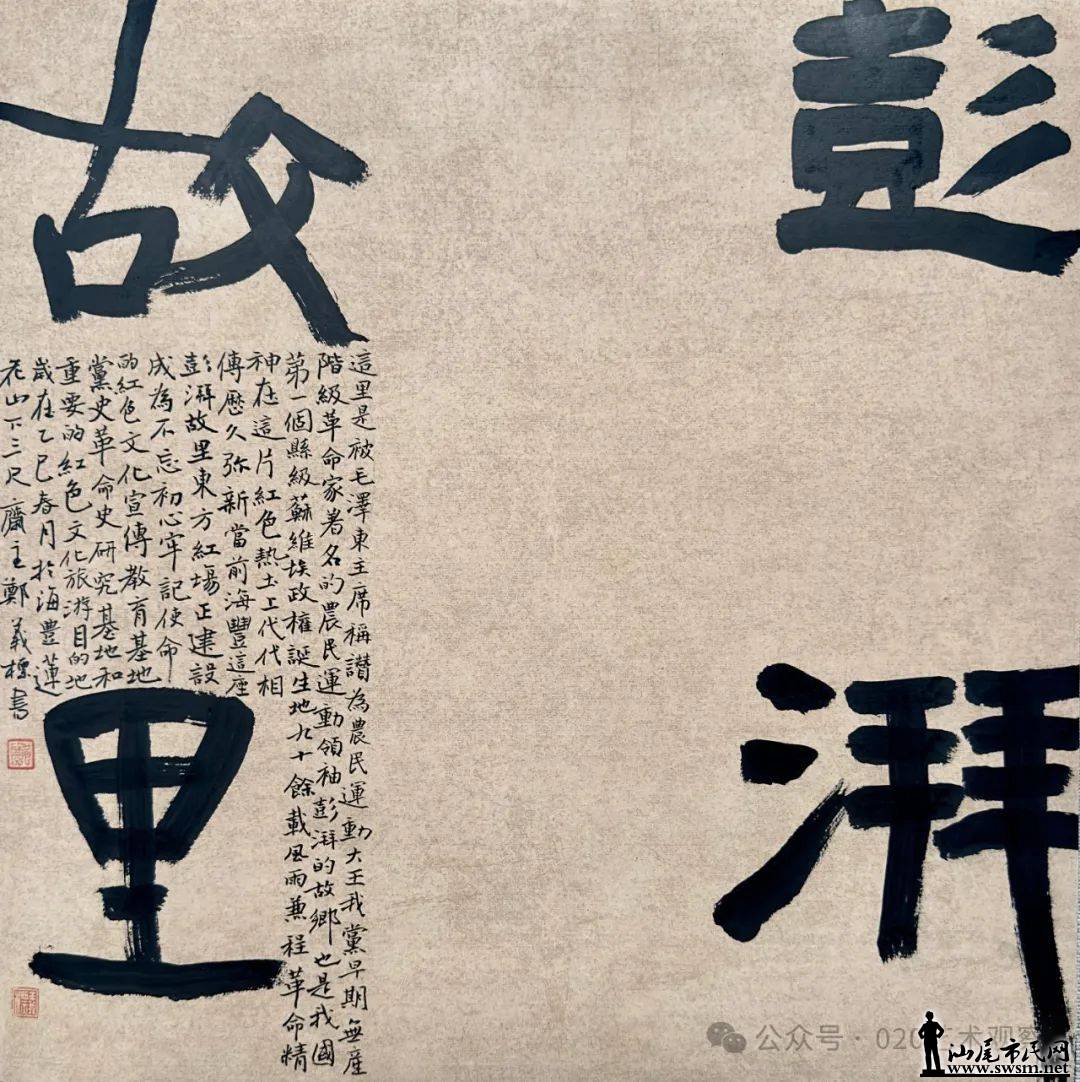 彭湃
故里
這里是被毛澤東主席稱讃為農民運動大王我黨早期無產
階級革命家著名的農民運動領袖彭湃的故鄉也是我國
第一個縣級蘇維埃政權誕生地九十餘載風雨兼程革命精
神在這片紅色熱土上代代相
傳歷久弥新當前海豐這座
彭湃故里東方紅場正建設
成為不忘初心牢記使命
的紅色文化宣傳教育基地
黨史革命史研究基地和
重要的紅色文化旅游目的地
歲在乙巳春月於海豊蓮
花山下三尺齋主鄭義標書
公众号·020艺术观察
汕尾市民网
www.swsm.net